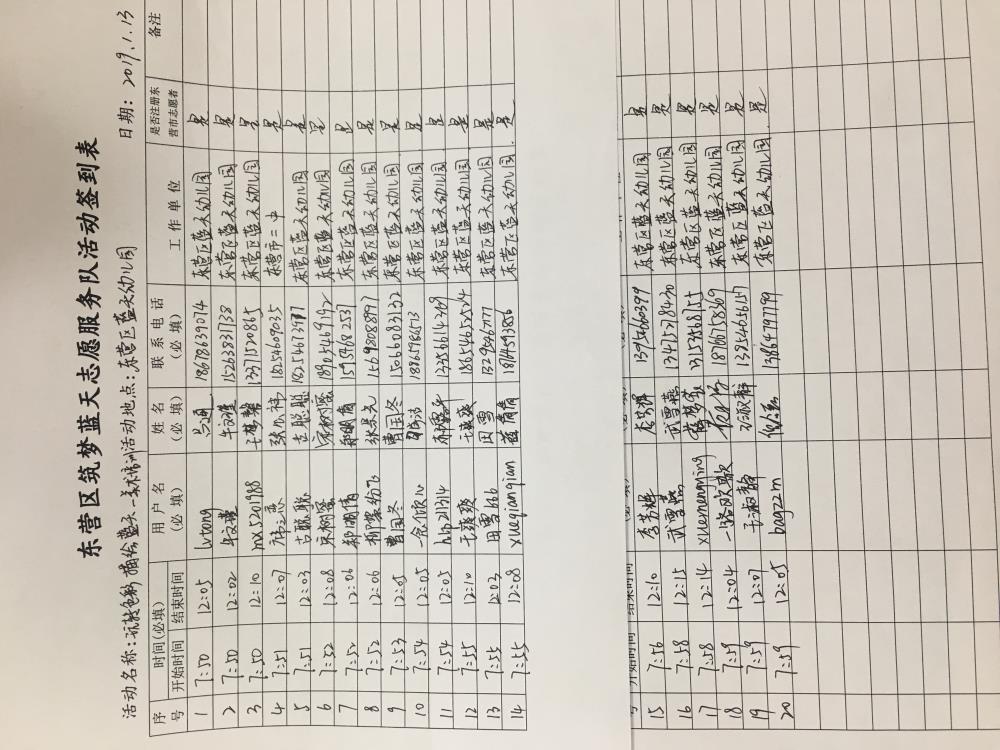 东营区筑梦蓝天志愿服务队活动签到表
活动名称：玩转色彩 描绘蓝天 美术培训 活动地点：东营区蓝天幼儿园 日期：2019.1.13
序号 时间(必填) 开始时间 结束时间 用户名(必填) 姓名(必填) 联系电话(必填) 工作单位 是否注册东营市志愿者 备注
1 7:50 12:05 lvtong 18678639074 东营区蓝天幼儿园 是
2 7:50 12:02 15263331738 东营区蓝天幼儿园 是
3 7:50 12:10 mx5201988 13371520865 东营区蓝天幼儿园 是
4 7:51 12:07 18254609035 东营市二中 是
5 7:51 12:03 古聪聪 古聪聪 东营区蓝天幼儿园 是
6 7:52 12:08 18905469192 东营区蓝天幼儿园 是
7 7:52 12:06 郝明倩 郝明倩 15954682531 东营区蓝天幼儿园 是
8 7:52 12:06 柳絮纷飞 15698088997 东营区蓝天幼儿园 是
9 7:53 12:05 曹国冬 曹国冬 15066083132 东营区蓝天幼儿园 是
10 7:54 12:05 一念倾心 18865984513 东营区蓝天幼儿园 是
11 7:54 12:05 hlp211314 13356614369 东营区蓝天幼儿园 是
12 7:55 12:10 王爽爽 王爽爽 18654525254 东营区蓝天幼儿园 是
13 7:55 12:03 田雪666 田雪 13295467177 东营区蓝天幼儿园 是
14 7:55 12:08 xueqianqian 薛倩倩 18714593856 东营区蓝天幼儿园 是
开始时间 结束时间
15 7:56 12:10 李芳琪 李芳琪 13954660399 东营区蓝天幼儿园 是
16 7:58 12:15 武雪燕 武雪燕 13417278420 东营区蓝天幼儿园 是
17 7:58 12:14 xuemengming 13153568155 东营区蓝天幼儿园 是
18 7:59 12:04 一路欢歌 18766758369 东营区蓝天幼儿园 是
19 7:59 12:07 王淑静 13954056157 东营区蓝天幼儿园 是
20 7:59 12:05 baqzzm 13864797799 东营区蓝天幼儿园 是